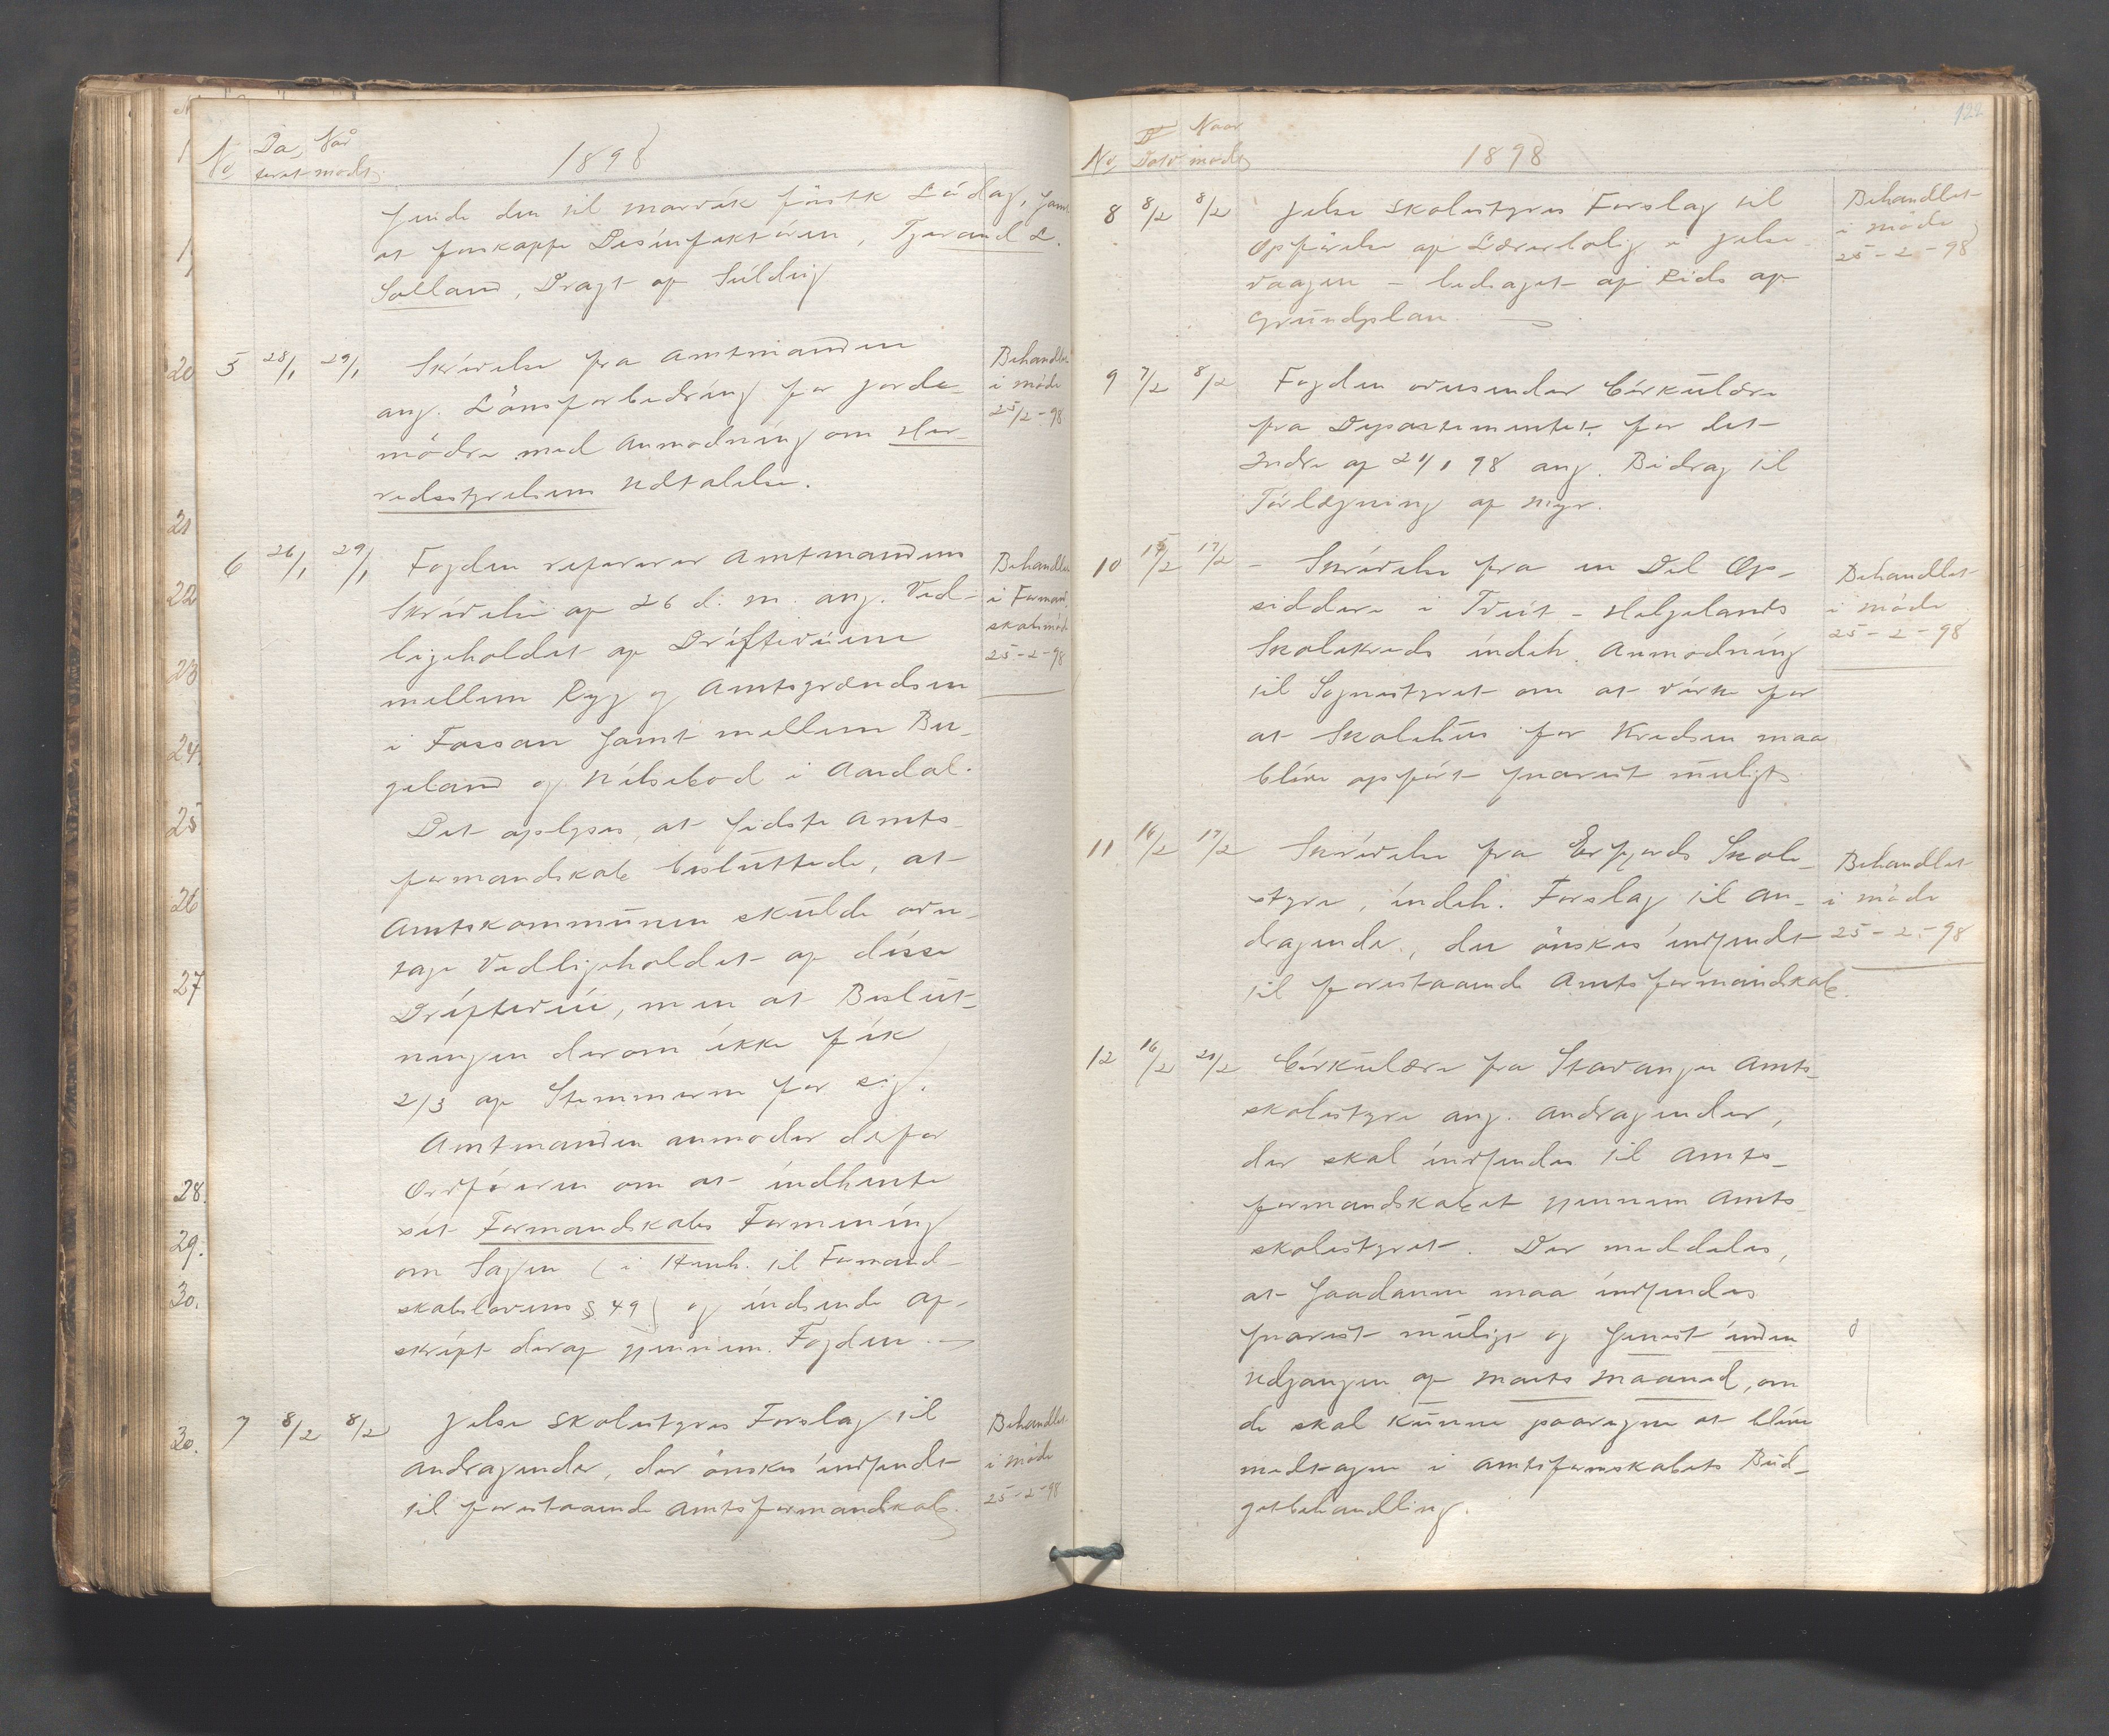 No
Da,
teret
Når
modt.
1898
sende den til marvik förstk Lådlag, samt
at forkappe Desinfektören, Tjerand L.
Solland, Dragt af Suldrig
5 28/1 29/1 Skrivelse fra Amtmanden
ang. Lönsforbedring for Jorde-
mödre med Anmodning om Her-
redsstyrelsens Udtalelse.
Behandlet
i möde
25/2-98
6 26/1 29/1 Fogden refererer Amtmandens
Skrivelse af 26 d. m. ang. Ved-
ligeholdet af Driftevei­ene
mellem Byg og Amtsgrændsen
i Fossan samt mellem Bu-
geland og Nilsebod i Aardal.
Det oplyses, at sidste Amts-
formandskab besluttede, at
Amtskommunen skulde over-
tage Vedligeholdet af disse
Drifteveie, men at Beslut-
ningen derom ikke fik
2/3 af Stemmerne for sig.
Amtmanden anmoder derfor
Ordföreren om at indhente
sit Formandskabs Formening
om Sagen (i Henh. til Formand-
skabslovens § 49) og indsende Af-
skrift deraf gjennem Fogden.
Behandlet
i Formand-
skabsmöde
25-2-98
7 8/2 8/2 Jelse Skolestyres Forslag til
Andragender, der önskes indsendt
til forestaaende Amtsformandskab.
Behandlet
i möde
25-2-98
20
21
22
23
24.
25
26
27
28.
29.
30.
30.
122
No
Dato
Naar
modt.
1898
8 8/2 8/2 Jelse Skolestyres Forslag til
Opförelse af Lærerbolig i Jelse-
vaagen - ledsaget af Rids af
Grundplan.
Behandlet
i möde
25-2-98
9 7/2 8/2 Fogden oversender Cirkulære
fra Departementet for det
Indre af 21/1 98 ang. Bidrag til
Törlægning af Myr.
10 15/2 17/2 - Skrivelse fra en Del Op-
siddere i Tveit - Helgelands
Skolekreds indeh. Anmodning
til Sognestyret om at virke for
at Skolehus for Kredsen maa
blive opfört snarest muligt
Behandlet
i möde
25-2-98
11 16/2 17/2 Skrivelse fra Erfjords Skole-
styre, indeh. Forslag til An-
dragender, der önskes indsendt
til forestaaende Amtsformandskab.
Behandlet
i möde
25-2-98
12 16/2 20/2 Cirkulære fra Stavanger Amts-
skolestyre ang. Andragender,
der skal indsendes til Amts-
formandskabet gjennem Amts-
skolestyret. Der meddeles,
at saadanne maa indsendes
snarest muligt og senest inden
Udgangen af Marts Maaned, om
de skal kunne paaregne at blive
medtagne i Amtsformskabets Bud-
getbehandling.